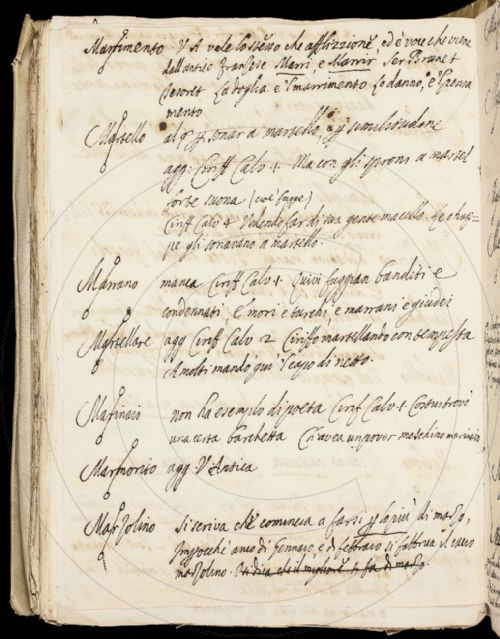 Marrimento. V A vale lo stesso che afflizzione, ed è voce che viene
dall'antico franzese Marri, e Marrir Ser Brunet
Tesoret La doglia e 'l marrimento Lo danno, e 'l pensa
mento
Martello al §. sonar a martello, per similitudine
agg: Ciriff Calv 1. Ma con gli sproni a martel
forte suona (cioè fugge)
Ciriff Calv 4 Vedendo far di sua gente macello. Le chiap=
pe gli sonavano a martello.
Marrano manca Ciriff Calv 1. Quivi fuggian banditi e
condennati E mori e turchi e marrani e giudei
Martellare agg Ciriff Calv 2 Ciriffo martellando con tempesta
A molti mandò qui 'l capo di netto.
Marinaio non ha esemplo di poeta Ciriff Calv 1 Costui trovò
una certa barchetta Ch'avea un pover meschino marinaio
Marmorito agg V Antica
Marzolino si scriva che comincia a farsi per lo più di marzo,
Impocchè anco di Gennaio, e di febbraio si fabbrica il cacio
marzolino. si dica che il migliore si fa di marzo.